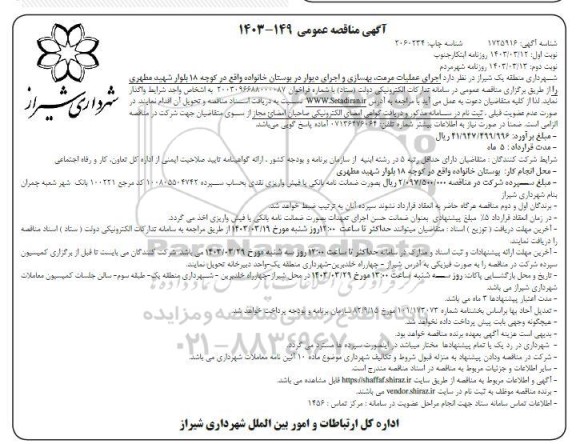 آگهی مناقصه عمومی ۱۴۹-۱۴۰۳
شناسه آگهی: ۱۷۲۵۹۱۶ شناسه چاپ: ۲۰۶۰۲۳۴
نوبت اول: ۱۴۰۳/۰۳/۱۲ روزنامه ابتکارجنوب
نوبت دوم: ۱۴۰۳/۰۳/۱۳ روزنامه شهرمردم
شهرداری شیراز
شهرداری منطقه یک شیراز در نظر دارد اجرای عملیات مرمت، بهسازی و اجرای دیوار در بوستان خانواده واقع در کوچه ۱۸ بلوار شهید مطهری
را از طریق برگزاری مناقصه عمومی در سامانه تدارکات الکترونیکی دولت (ستاد) با شماره فراخوان ۲۰۰۳۰۹۶۶۸۸۰۰۰۰۸۷ به اشخاص واجد شرایط واگذار
نماید. لذا از کلیه متقاضیان دعوت به عمل می آید با مراجعه به آدرس www.Setadiran.ir نسبت به دریافت اسناد مناقصه و تحویل آن اقدام نمایند. در
صورت عدم عضویت قبلی، ثبت نام در سامانه مذکور و دریافت گواهی امضای الکترونیکی صاحبان امضای مجاز از سوی متقاضیان جهت شرکت در مناقصه
الزامی است. ضمنا در صورت نیاز به اطلاعات بیشتر شماره تلفن ۰۷۱۳۶۴۷۶۰۶۴ آماده پاسخ گویی می‌باشد.
- مبلغ برآورد: ۴۱/۹۴۷/۴۹۹/۹۹۶ ریال
- مدت قرارداد: ۵ ماه
شرایط شرکت کنندگان: متقاضیان دارای حداقل رتبه ۵ در رشته ابنیه از سازمان برنامه و بودجه کشور، ارائه گواهینامه تایید صلاحیت ایمنی از اداره کل تعاون، کار و رفاه اجتماعی
- محل انجام کار: بوستان خانواده واقع در کوچه ۱۸ بلوار شهید مطهری
- مبلغ سپرده شرکت در مناقصه ۲/۰۹۷/۵۰۰/۰۰۰ ریال بصورت ضمانت نامه بانکی یا فیش واریزی نقدی بحساب سپرده ۱۰۰۸۰۵۵۰۴۷۴۲ کد مرجع ۱۰۰۲۲۱ بانک شهر شعبه چمران
بنام شهرداری شیراز
- برندگان اول و دوم مناقصه هرگاه حاضر به انعقاد قرارداد نشوند سپرده آنان به ترتیب ضبط خواهد شد.
- در زمان انعقاد قرارداد ۵٪ مبلغ پیشنهادی بعنوان ضمانت حسن اجرای تعهدات بصورت ضمانت نامه بانکی یا فیش واریزی اخذ می گردد.
- آخرین مهلت دریافت (توزیع) اسناد: متقاضیان میتوانند حداکثر تا ساعت ۱۳:۰۰ روز شنبه مورخ ۱۴۰۳/۰۳/۱۹ از طریق مراجعه به سامانه تدارکات الکترونیکی دولت (ستاد) اسناد مناقصه
را دریافت نمایند.
- آخرین مهلت ارائه پیشنهادات و ثبت اسناد و مدارک در سامانه حداکثر تا ساعت ۱۳:۰۰ روز سه شنبه مورخ ۱۴۰۳/۰۳/۲۹ می باشد. شرکت کنندگان می بایست تا قبل از برگزاری کمیسیون
سپرده شرکت در مناقصه را به صورت فیزیکی به آدرس شیراز - چهارراه خلدبرین-شهرداری منطقه یک-واحد دبیرخانه تحویل نمایند.
- تاریخ و محل بازگشایی پاکات: روز سه شنبه ساعت ۱۳:۰۰ مورخ ۱۴۰۳/۰۳/۲۹ در محل شیراز-چهارراه خلدبرین - شهرداری منطقه یک- طبقه سوم- سالن جلسات کمیسیون معاملات
شهرداری شیراز می باشد
- مدت اعتبار پیشنهادها ۳ ماه می باشد.
- تعدیل آحاد بها براساس بخشنامه شماره ۱۰۱/۱۷۳۰۷۳ مورخ ۸۲/۹/۱۵ سازمان برنامه و بودجه پرداخت خواهد شد.
- هیچگونه وجهی بابت پیش پرداخت داده نخواهد شد.
- بدیهی است هزینه آگهی بعهده برنده مناقصه خواهد بود.
- شهرداری در رد یک یا تمام پیشنهادها مختار میباشد در اینصورت سپرده ها مسترد می گردد.
- شرکت در مناقصه ودادن پیشنهاد به منزله قبول شروط و تکالیف شهرداری موضوع ماده ۱۰ آئین نامه معاملات شهرداری می باشد.
- سایر اطلاعات و جزئیات مربوط به مناقصه در اسناد مناقصه مندرج است.
- آگهی و اطلاعات مربوط به مناقصه از طریق سایت https://shaffaf.shiraz.ir قابل مشاهده می باشد.
- برنده مناقصه موظف به ثبت نام در سایت vendor.shiraz.ir می باشد.
- اطلاعات تماس سامانه ستاد جهت انجام مراحل عضویت در سامانه: مرکز تماس: ۱۴۵۶
اداره کل ارتباطات و امور بین الملل شهرداری شیراز
ParsNamadData
۰۲۱-۸۸۳۴۹۶۷۰-۵